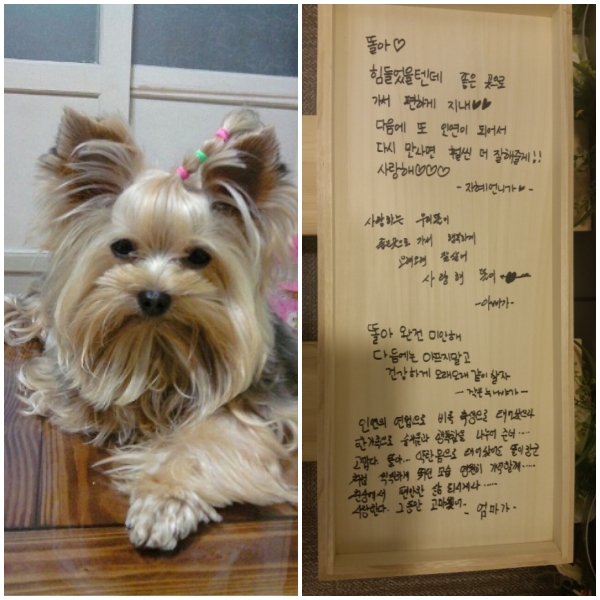 똘아♡
힘들었을텐데 좋은 곳으로
가서 편하게 지내♥♥
다음에 또 인연이 되어서
다시 만나면 훨씬 더 잘해줄게!!
사랑해♡♡♡
-지혜언니가♥-
사랑하는 우리똘이
좋은곳으로 가서 행복하게
오래오래 잘살어
사랑해 똘이
-아빠가-
똘아 완전 미안해
다음에는 아프지말고
건강하게 오래오래 같이 살자
-작은누나야가-
인연의 연법으로 비록 축생으로 태어났으나
한가족으로 슬픔과 행복함을 나누어 준
고맙다 똘아... 약한몸으로 태어났어도
씩씩하게 모습 영원히 기억할께....
편안한 삶 되시거라.....
사랑한다. 그동안 고마웠어. - 엄마가-